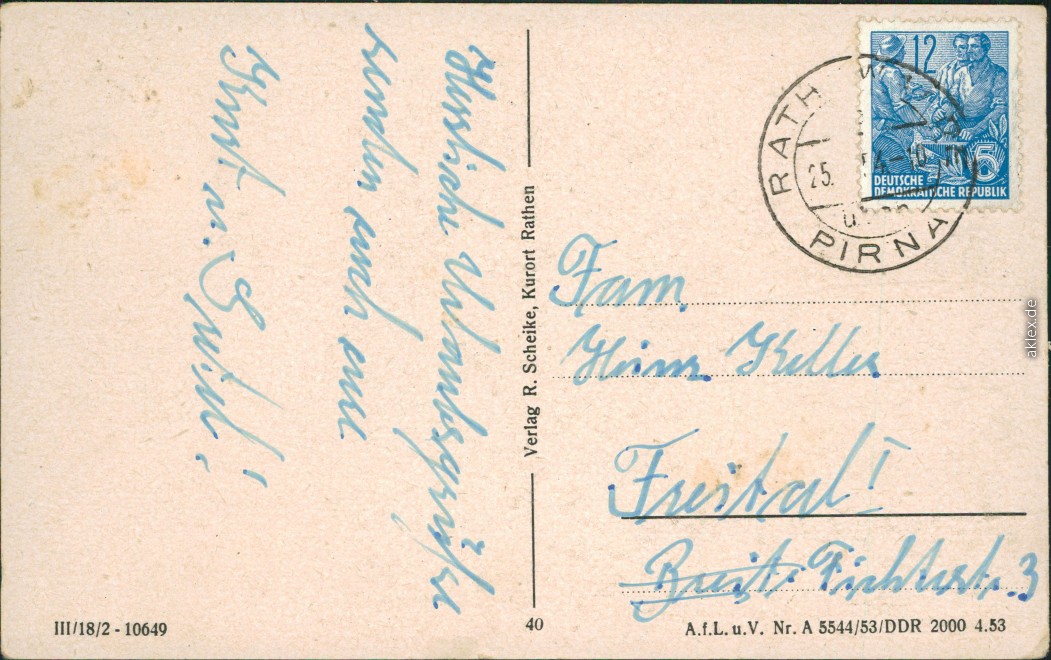 Herzliche Urlaubsgrüße
senden euch eure
Kurt u.
Verlag R. Scheike, Kurort Rathen
12
5
DEUTSCHE
DEMOKRATISCHE REPUBLIK
RATH
25.
PIRNA
Fam.
Heinz Keller
Freital I
Fichtestr. 3
III/18/2 - 10649
40
A.f.L.u.V. Nr. A 5544/53/DDR 2000 4.53
aklex.de